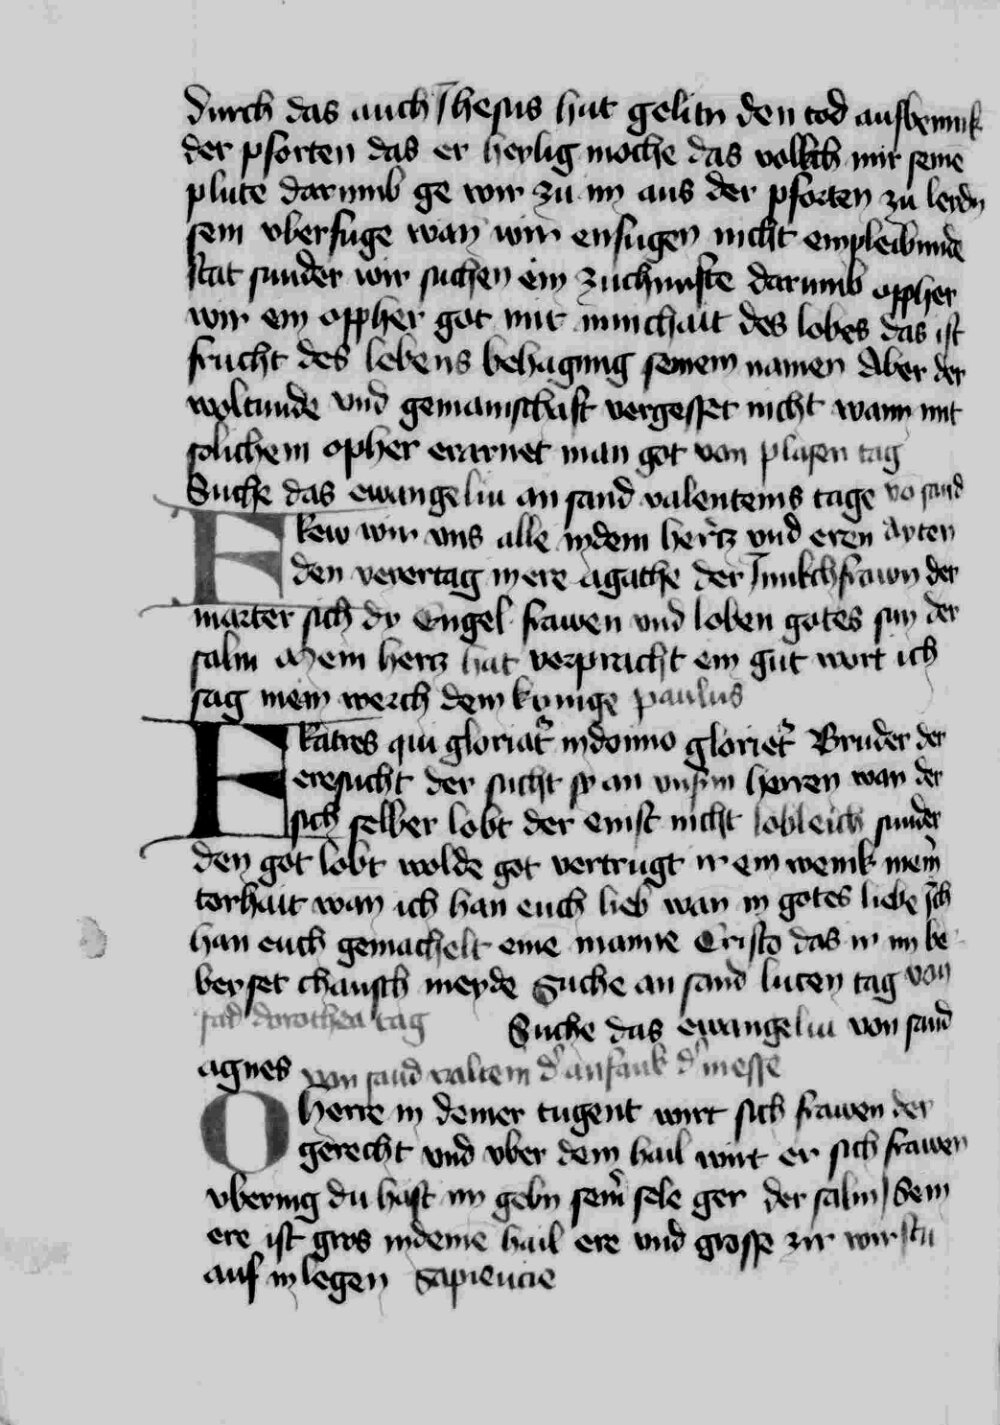 durch das auch Jhesus hat gelitn den tod auswennik
der pforten das er heylig moche das volkch mit seinē
plute darumb ge wir zu im aus der pforten zu
sein vberfuge wan wir enfugen nicht einpleibunde
stat sunder wir suchen ein zuchunfte darumb oppher
wir ein oppher got mit innichait des lobes das ist
frucht des lebens behagung seinem namen Aber der
woltunde vnd gemainschaft vergesset nicht wann mit
solichem opher erarnet man got von plasen tag
Suche das ewangeliū an sand valenteins tage vō sand
Frew wir vns alle indem hertz vnd eren Ayten
den veyertag in ere agathe der Junkchfrawn der
marter sich dy Engel frawen vnd loben gotes sun der
salm Mein hertz hat verpracht ein gut wort ich
sag mein werch dem kunige paulus
Fratres qui gloriat̄ indomino gloriet̄ Bruder der
eresucht der sucht sy an vnsm herren wan der
sich selber lobt der enist nicht lobleich sunder
den got lobt wolde got vertrugt ir ein wenik mein̄
torhait wan ich han euch lieb wan in gotes liebe Ich
han euch gemachelt eine manne Cristo das ir im be
berset chausch meyde Suche an sand lucen tag von
sād dorothea tag Suche das ewangeliū von sand
agnes von sand valtein d' anfank d' messe
O herre in deiner tugent wirt sich frawen der
gerecht vnd vber dem hail wirt er sich frawen
vbering du hast im gebn sein̄ sele ger der salm Sein
ere ist gros indeinē hail ere vnd grosse zir wirstu
auf in legen Sapiencie